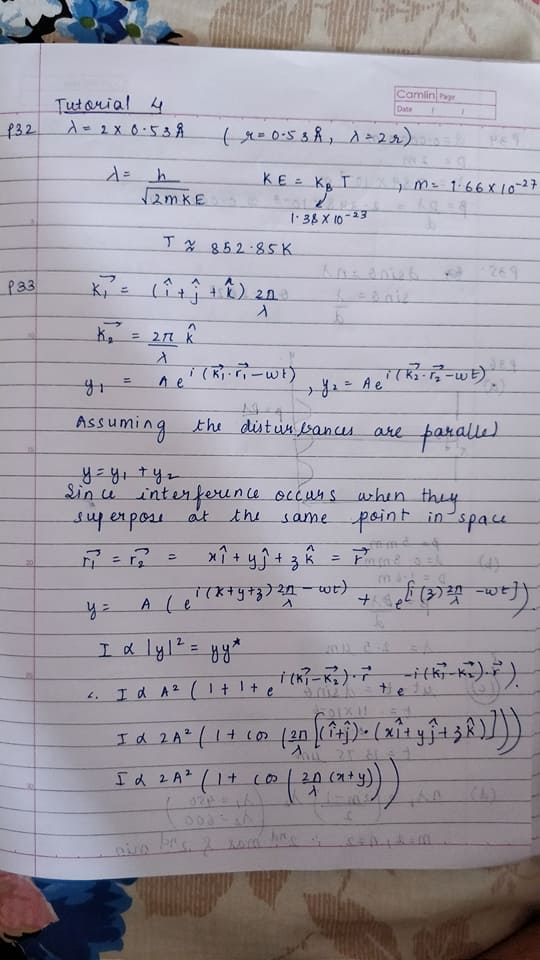 Camlin Page
Date / /
Tutorial 4
P32 λ = 2 × 0.53 Å ( r = 0.53 Å, λ = 2r)
λ = h / √(2mKE) KE = K_B T , m = 1.66 × 10^-27
1.38 × 10^-23
T ≈ 852.85 K
P33 K₁⃗ = (î + ĵ + k̂) 2π/λ
K₂⃗ = 2π/λ k̂
y₁ = A e^{i(K₁⃗·r₁⃗ - wt)} , y₂ = A e^{i(K₂⃗·r₂⃗ - wt)} .
Assuming the disturbances are parallel
y = y₁ + y₂
Since interference occurs when they
superpose at the same point in space
r₁⃗ = r₂⃗ = xî + yĵ + zk̂ = r⃗
y = A ( e^{i(x+y+z) 2π/λ - wt)} + e^{i[(z) 2π/λ - wt]} ) .
I α |y|² = yy*
∴ I α A² ( 1 + 1 + e^{i(K₁⃗-K₂⃗)·r⃗} + e^{-i(K₁⃗-K₂⃗)·r⃗} ) .
I α 2A² ( 1 + cos ( 2π/λ [(î+ĵ)·(xî + yĵ + zk̂)] ) )
I α 2A² ( 1 + cos ( 2π/λ (x+y) ) )